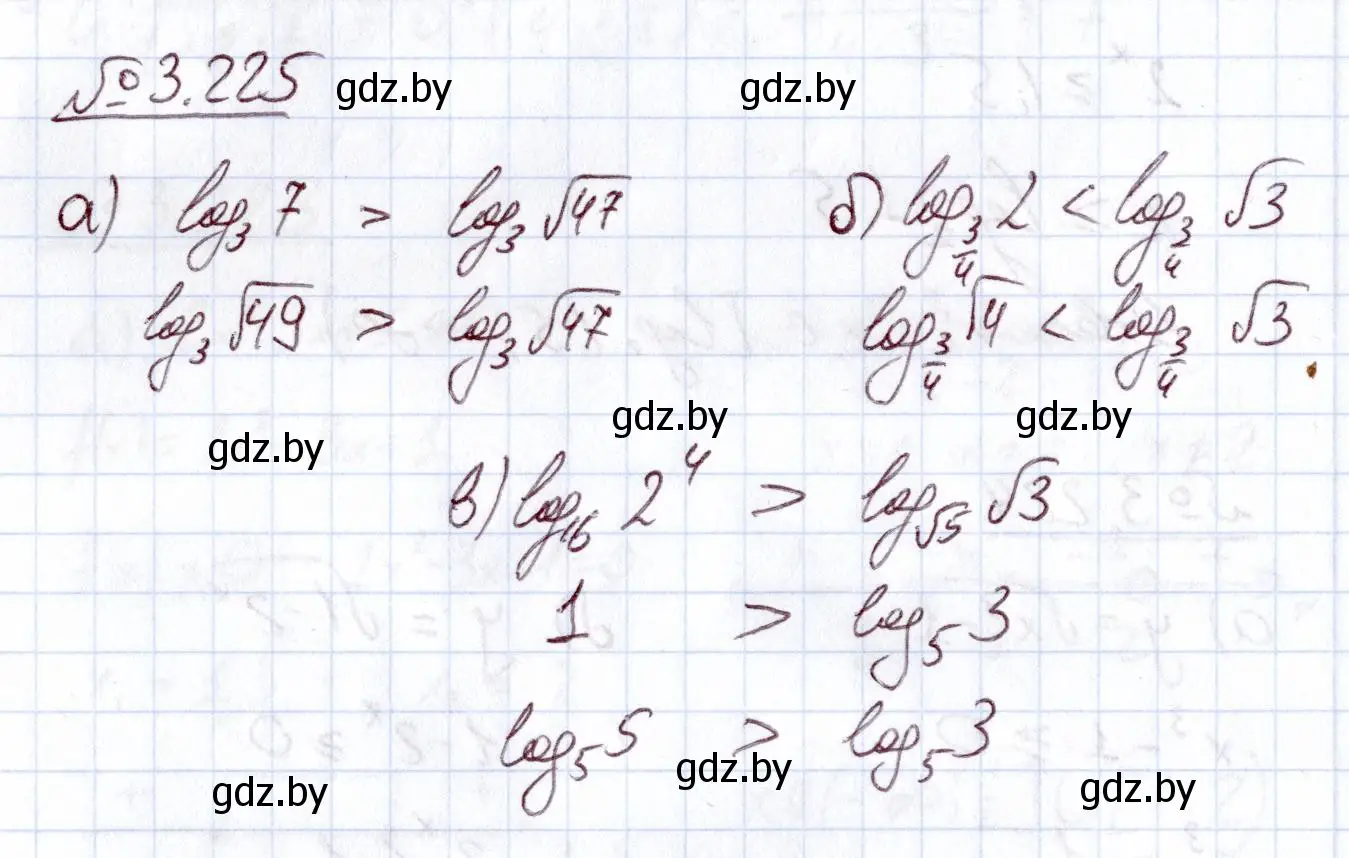 №3.225 gdz.by gdz.by
а) log₃ 7 > log₃ √47 б) log_{3/4} 2 < log_{3/4} √3
log₃ √49 > log₃ √47 log_{3/4} √4 < log_{3/4} √3
gdz.by gdz.by gdz.by
в) log₁₆ 2⁴ > log_{√5} √3
1 > log₅ 3
log₅ 5 > log₅ 3
gdz.by gdz.by gdz.by